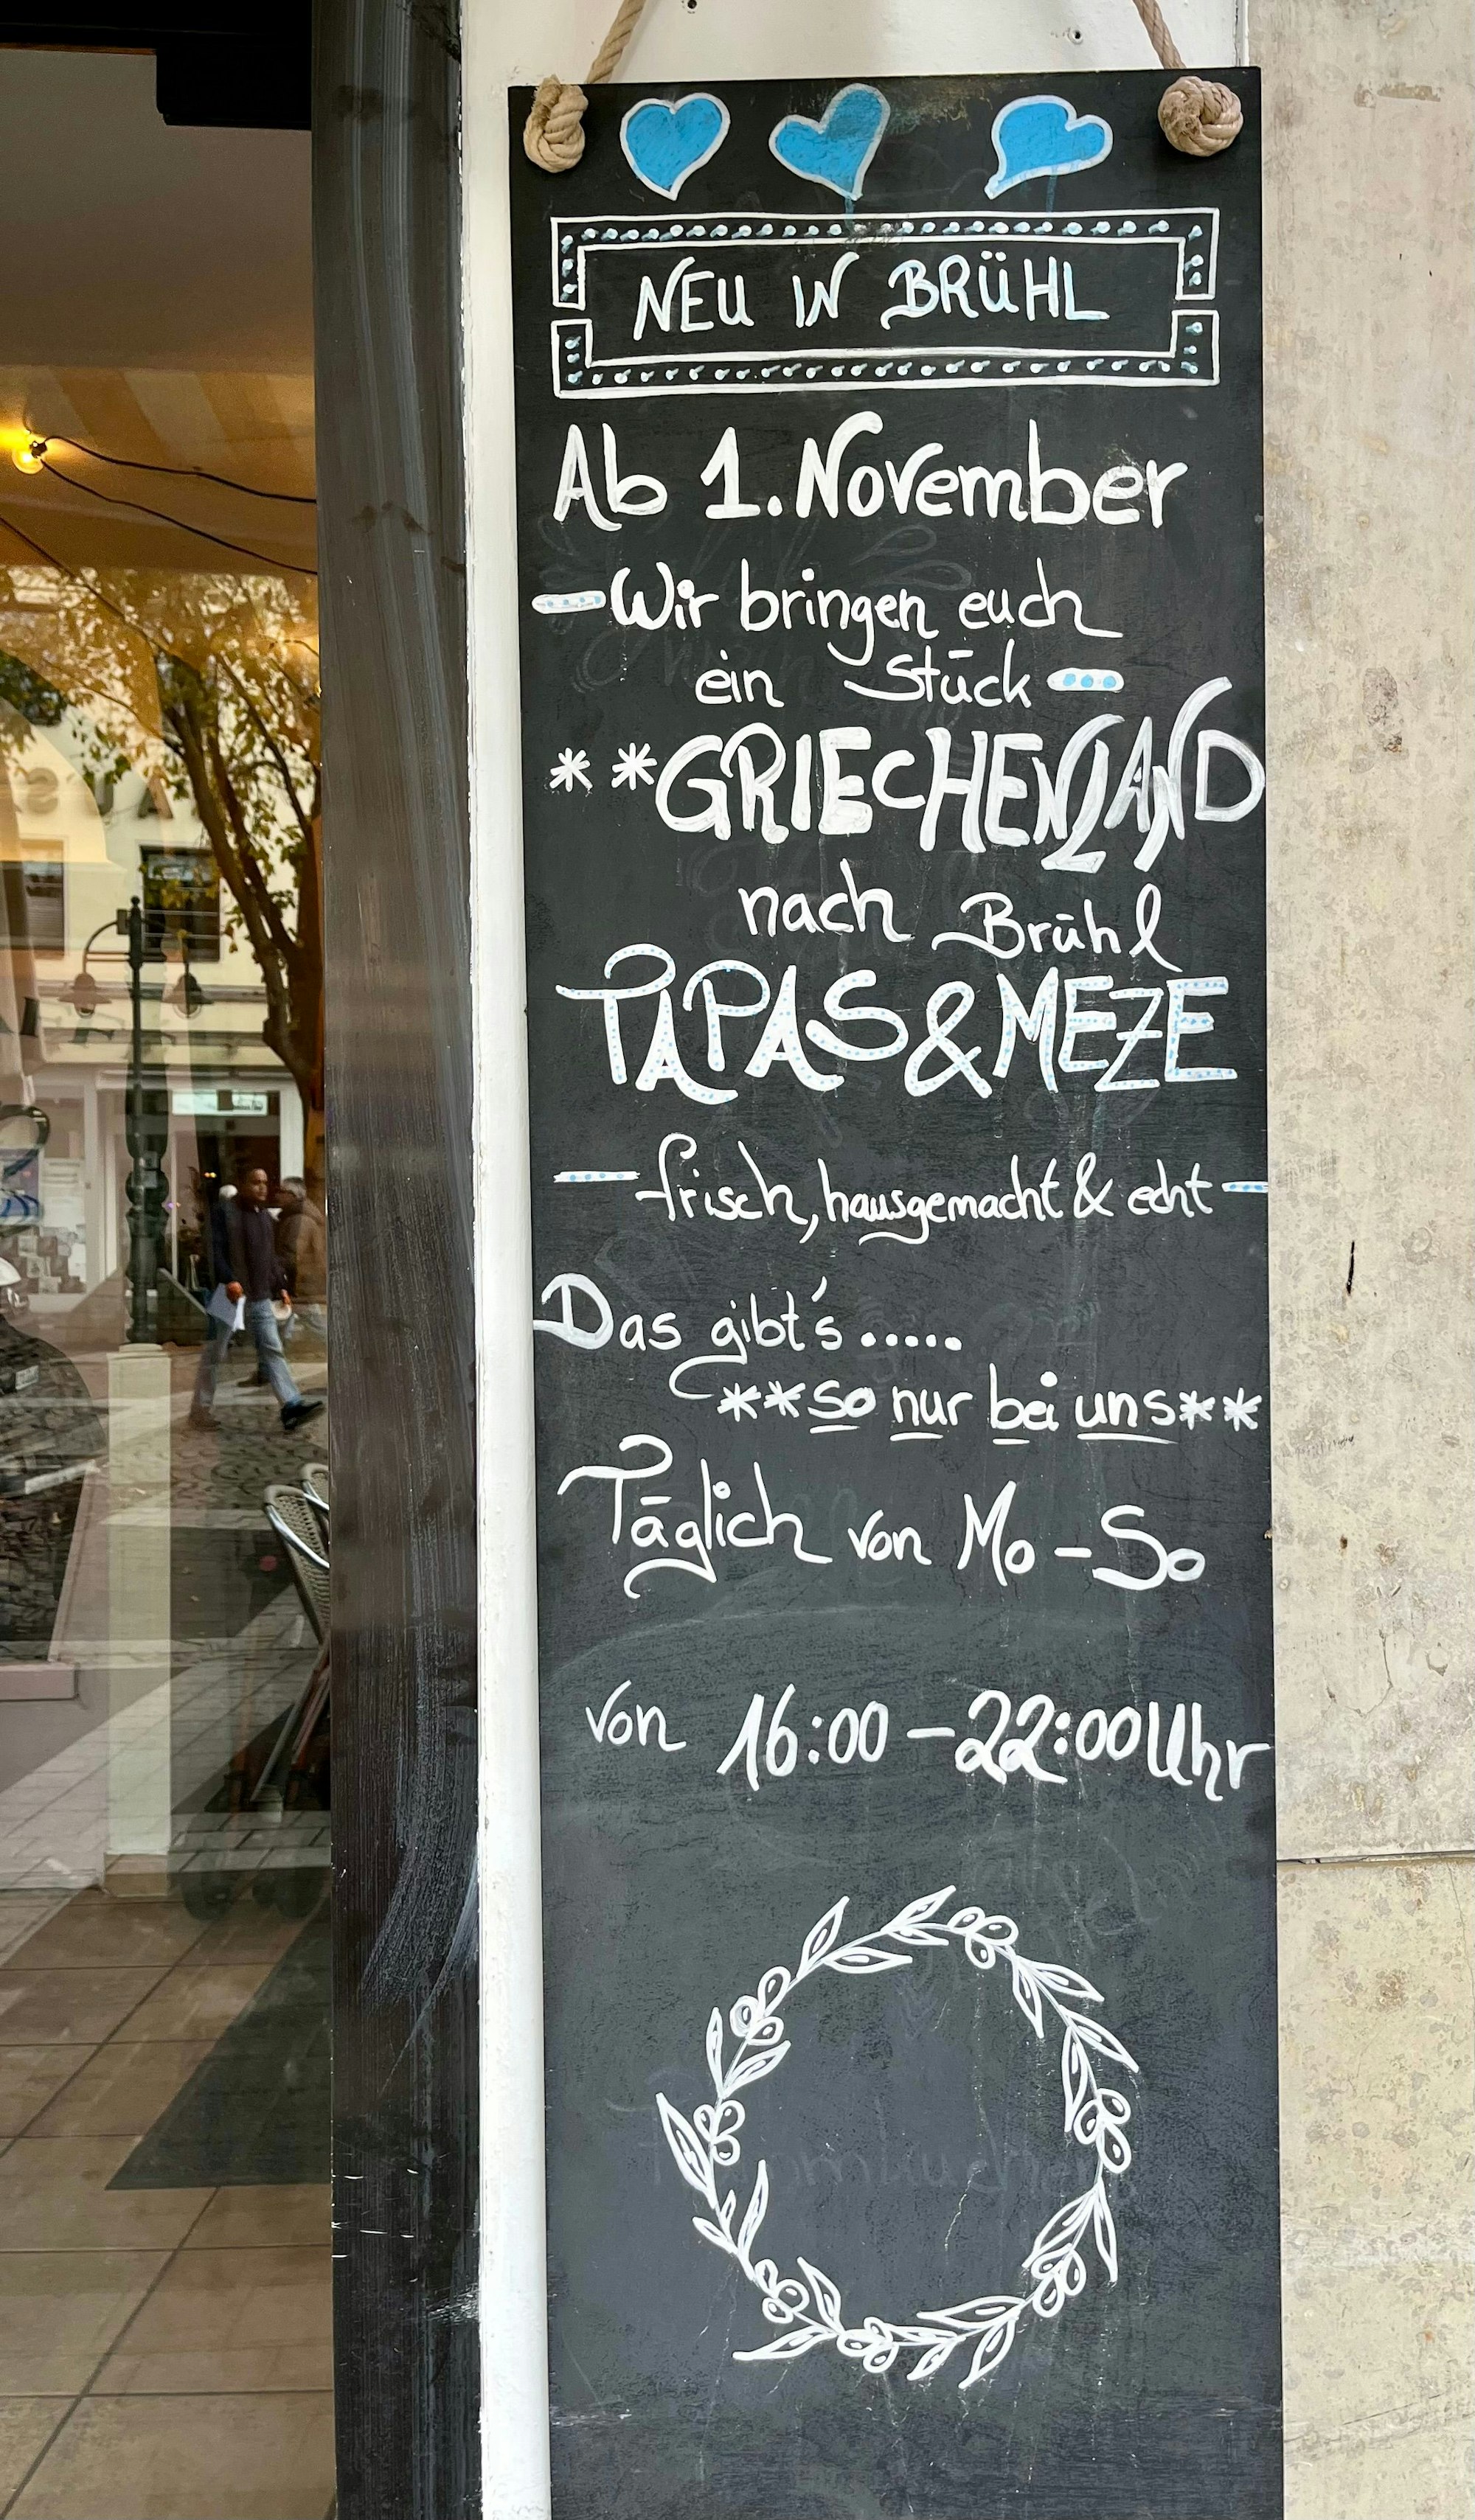 NEU IN BRÜHL
Ab 1. November
Wir bringen euch
ein Stück
**GRIECHENLAND
nach Brühl
TAPAS & MEZE
frisch, hausgemacht & echt
Das gibt's.....
**so nur bei uns**
Täglich von Mo - So
von 16:00 - 22:00 Uhr